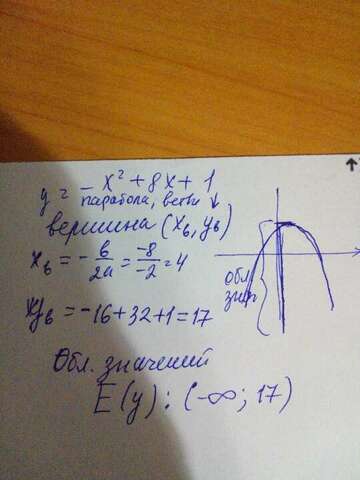 y = - x² + 8x + 1
парабола, ветви ↓
вершина (xв, yв)
xв = - в/2а = -8/-2 = 4
yв = -16+32+1=17
Обл. знач
Обл. значений
E(y): (-∞; 17)